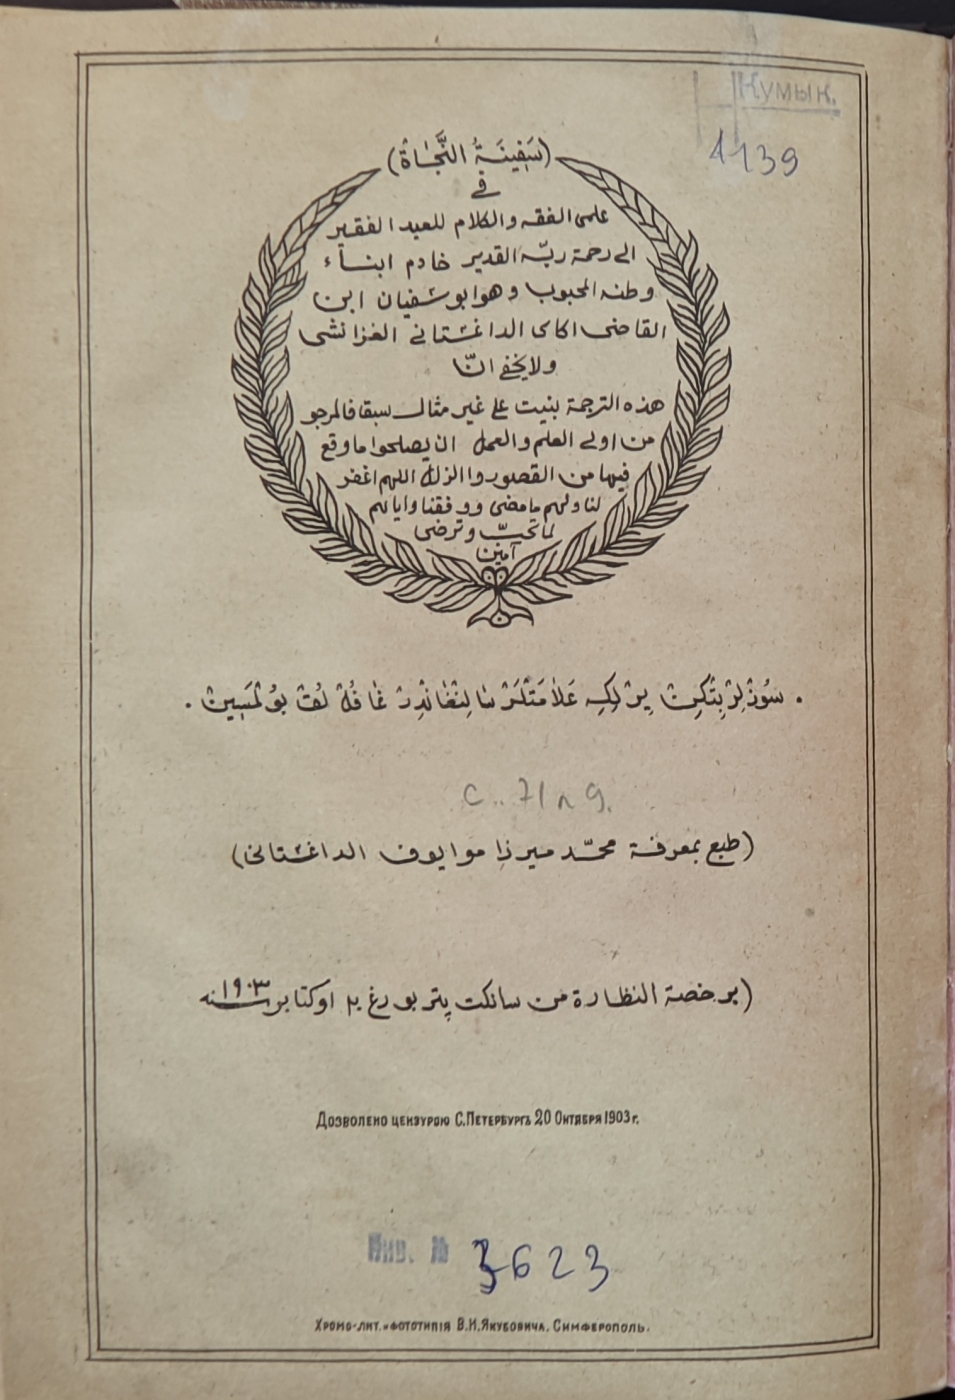 Кумык.
1139
(سَفِينَةُ النَّجَاةُ)
في
علمى الفقه والكلام للعبد الفقير
الى رحمة ربّه القدير خادم ابنآء
وطنه المحبوب وهوابوسفيان ابن
القاضى اكاى الداغستانى الغزانشى
ولايخفى انّ
هذه الترجمة بنيت على غير مثال سبقافالمرجو
من اولى العلم والعمل ان يصلحوا ماوقع
فيها من القصور واالزلل اللهم اغفر
لنا ولهم مامضى ووفقنا واياهم
لماتحبّ وترضى
آمين
(طبع بمعرفة محمّد ميرزا موايوف الداغستانى)
(برخصة النظارة من سانكت پتربورغ ٢٠ اوكتابر سنه ١٩٠٣
Дозволено цензурою С.Петербургъ 20 Октября 1903 г.
Инв. №
3623
Хромо-лит. и фототипія В.И.Якубовича. Симферополь.